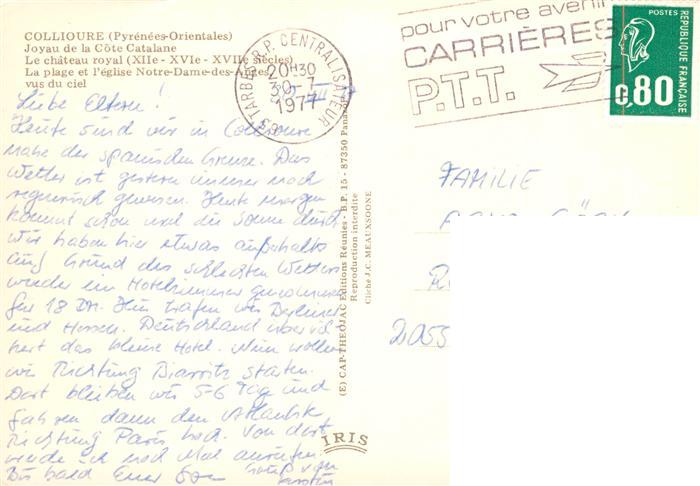 COLLIOURE (Pyrénées-Orientales)
Joyau de la Côte Catalane
Le château royal (XIIe - XVIe - XVIIe siècles)
La plage et l'église Notre-Dame-des-Anges
vus du ciel
Liebe Eltern!
Heute sind wir in Collioure
nahe der spanischen Grenze. Das
Wetter ist gestern immer noch
regnerisch gewesen. Heute morgen
kommt schon mal die Sonne durch.
Wir haben hier etwas außerhalb
auf Grund des schlechten Wetters
wieder ein Hotelzimmer genommen
für 18 DM. Hier trafen wir Berliner
und Hessen. Deutschland
das kleine Hotel. Nun wollen
wir Richtung Biarritz starten.
Dort bleiben wir 5-6 Tage und
fahren dann den Atlantik
Richtung Paris hoch. Von dort
werde ich noch Mal anrufen.
Bis bald Euer
Gruß von
(E) CAP-THEOJAC Editions Réunies - B.P. 15 - 87350 Panazol
Reproduction interdite
Cliché J.C. MEAUXSOONE
IRIS
65 TARBES R.P. CENTRALISATEUR
20H30
30-7
1977
pour votre avenir
CARRIÈRES
P.T.T.
POSTES
REPUBLIQUE FRANÇAISE
0,80
FAMILIE
2055